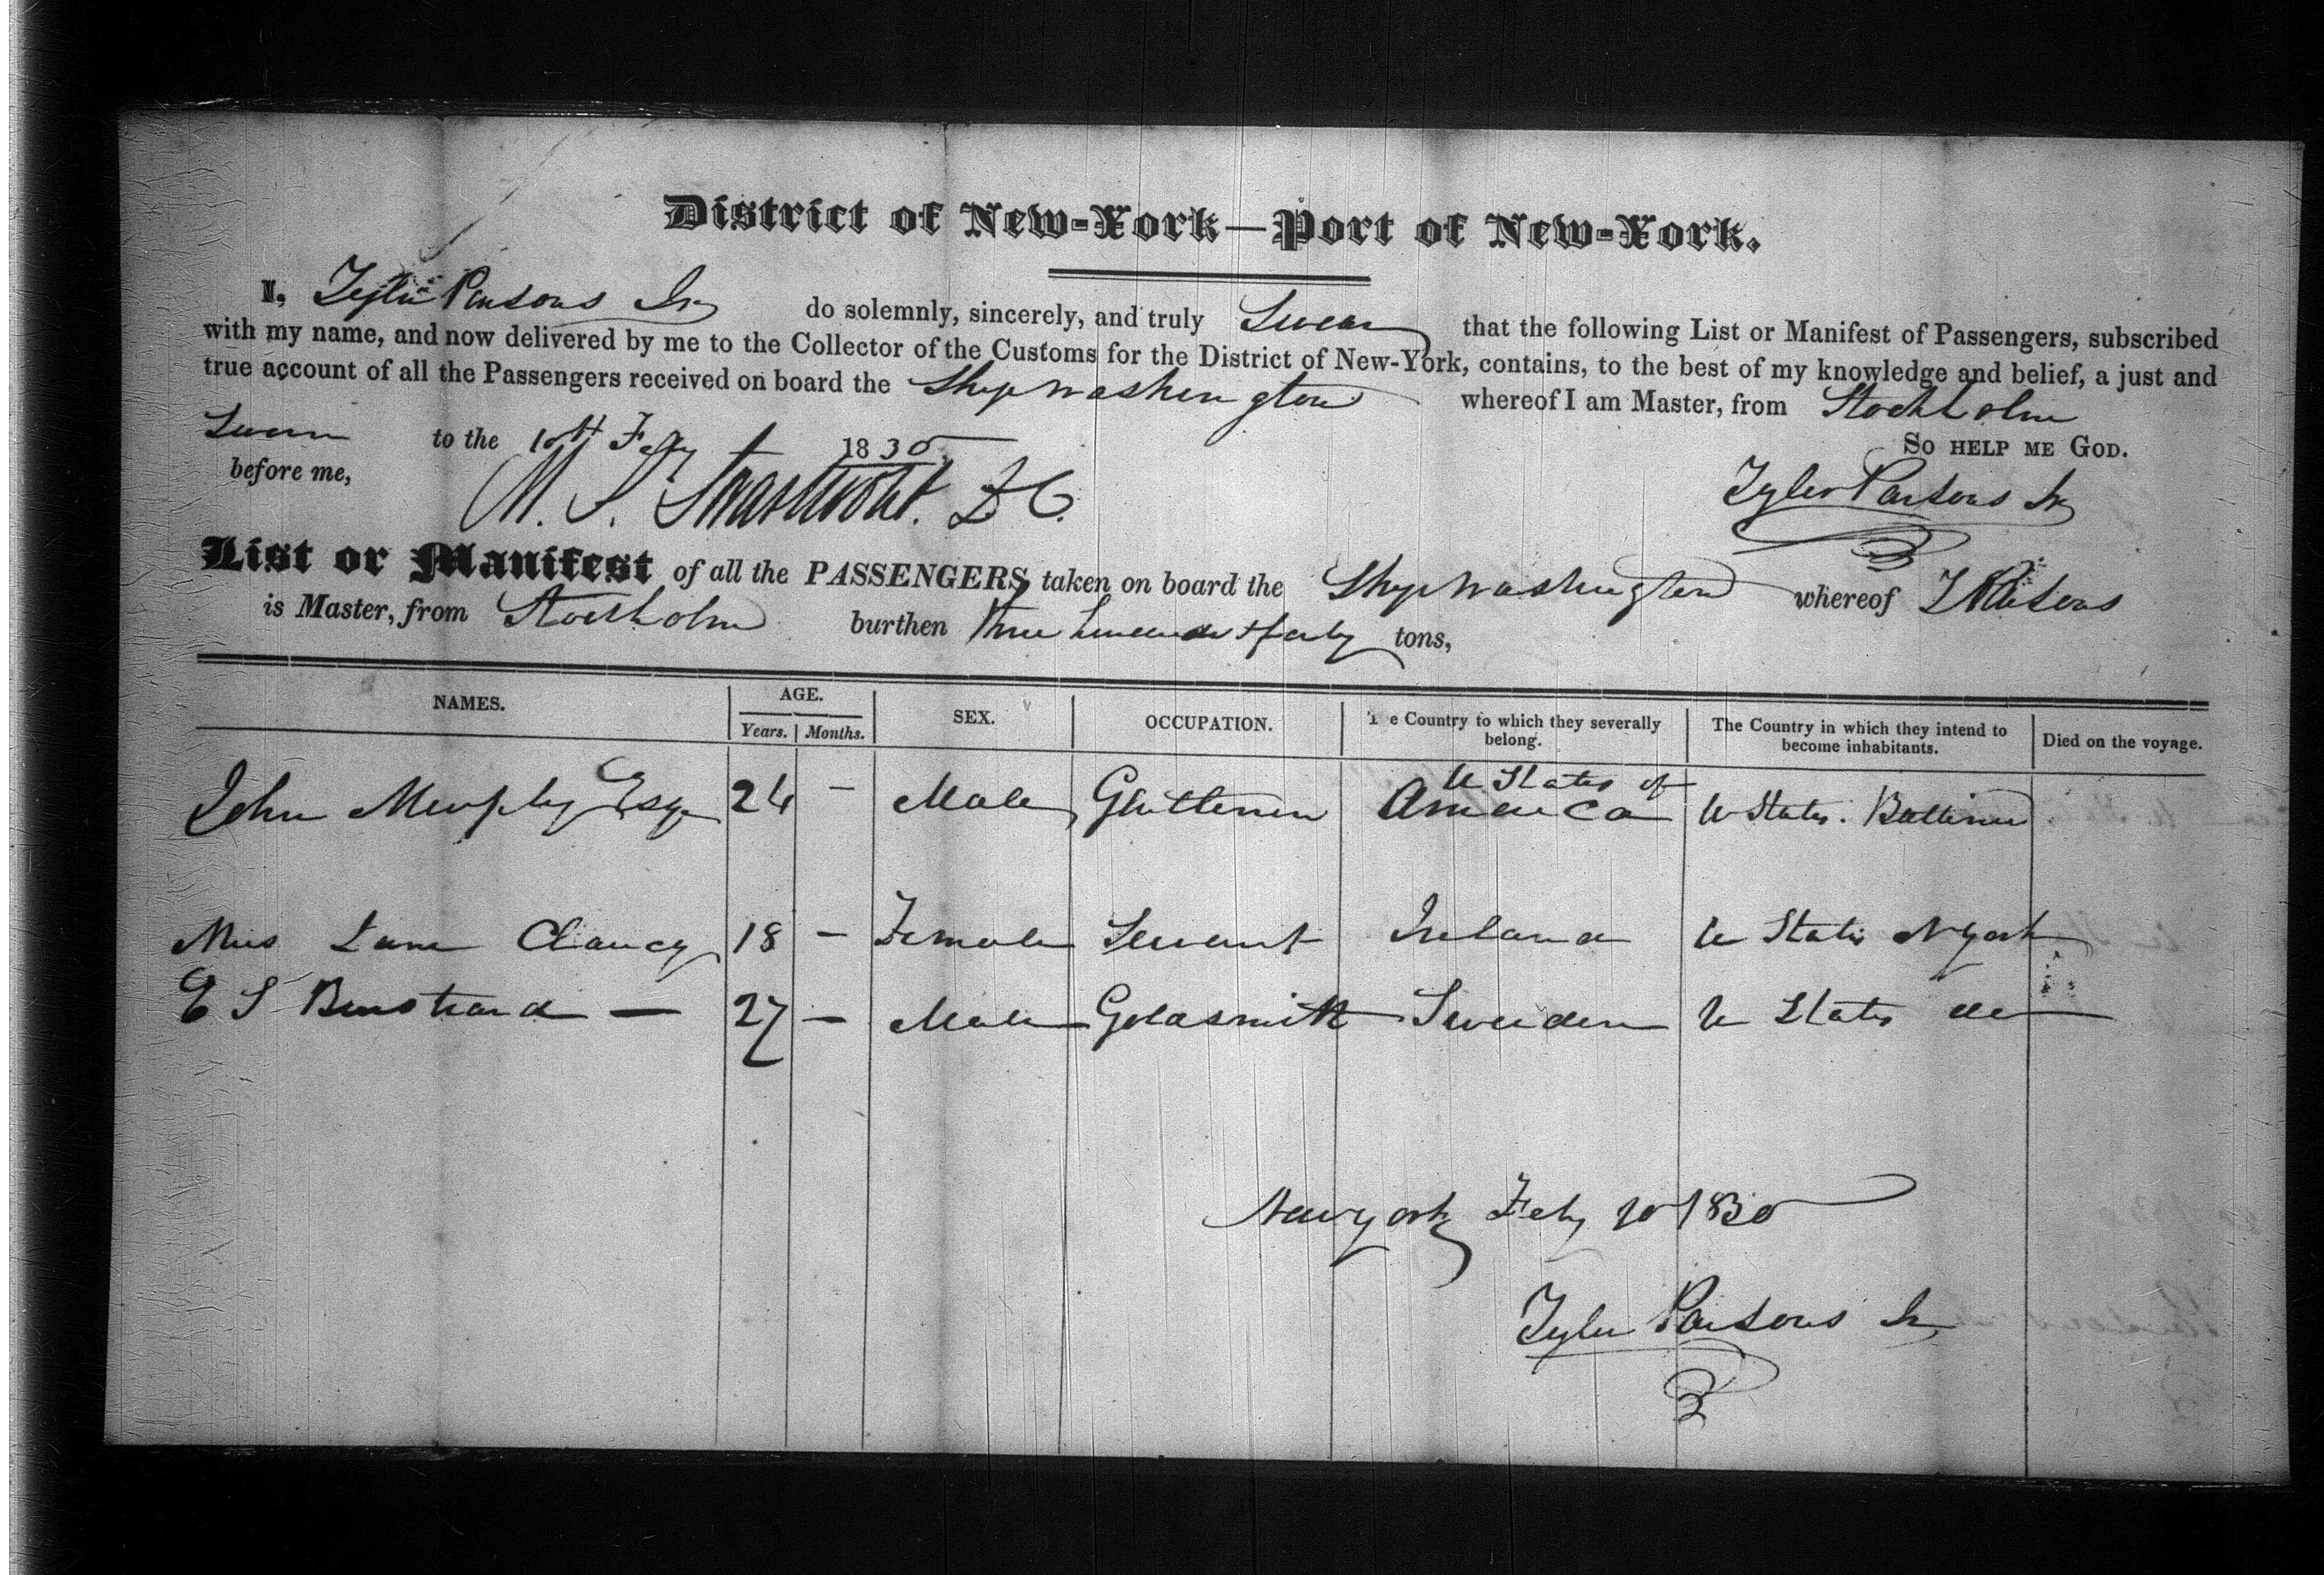 District of New-York—Port of New-York.
I, Tyler Parsons Jr do solemnly, sincerely, and truly Swear that the following List or Manifest of Passengers, subscribed
with my name, and now delivered by me to the Collector of the Customs for the District of New-York, contains, to the best of my knowledge and belief, a just and
true account of all the Passengers received on board the Ship Washington whereof I am Master, from Stockholm
Sworn to the 10th Feby 1830. So help me God.
before me, M. S. Swartwout. D C. Tyler Parsons Jr
List or Manifest of all the PASSENGERS taken on board the Ship Washington whereof T Parsons
is Master, from Stockholm burthen three hundred & forty tons,
NAMES. AGE. Years. Months. SEX. OCCUPATION. The Country to which they severally belong. The Country in which they intend to become inhabitants. Died on the voyage.
John Murphy Esqr 24 — Male U States of America U States. Baltimore
Miss Clancy 18 — Female Servant Ireland U States N York
E S — 27 — Male Goldsmith Sweden U States
New York Feby 10 1830
Tyler Parsons Jr